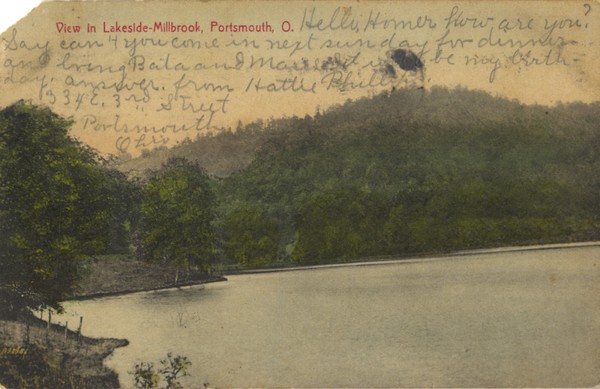 View in Lakeside-Millbrook, Portsmouth, O.
Hello, Homer how are you?
Say can't you come in next sunday for dinner
and bring Bata and it be my birth-
day. answer. from Hattie
3rd Street
Portsmouth
Ohio